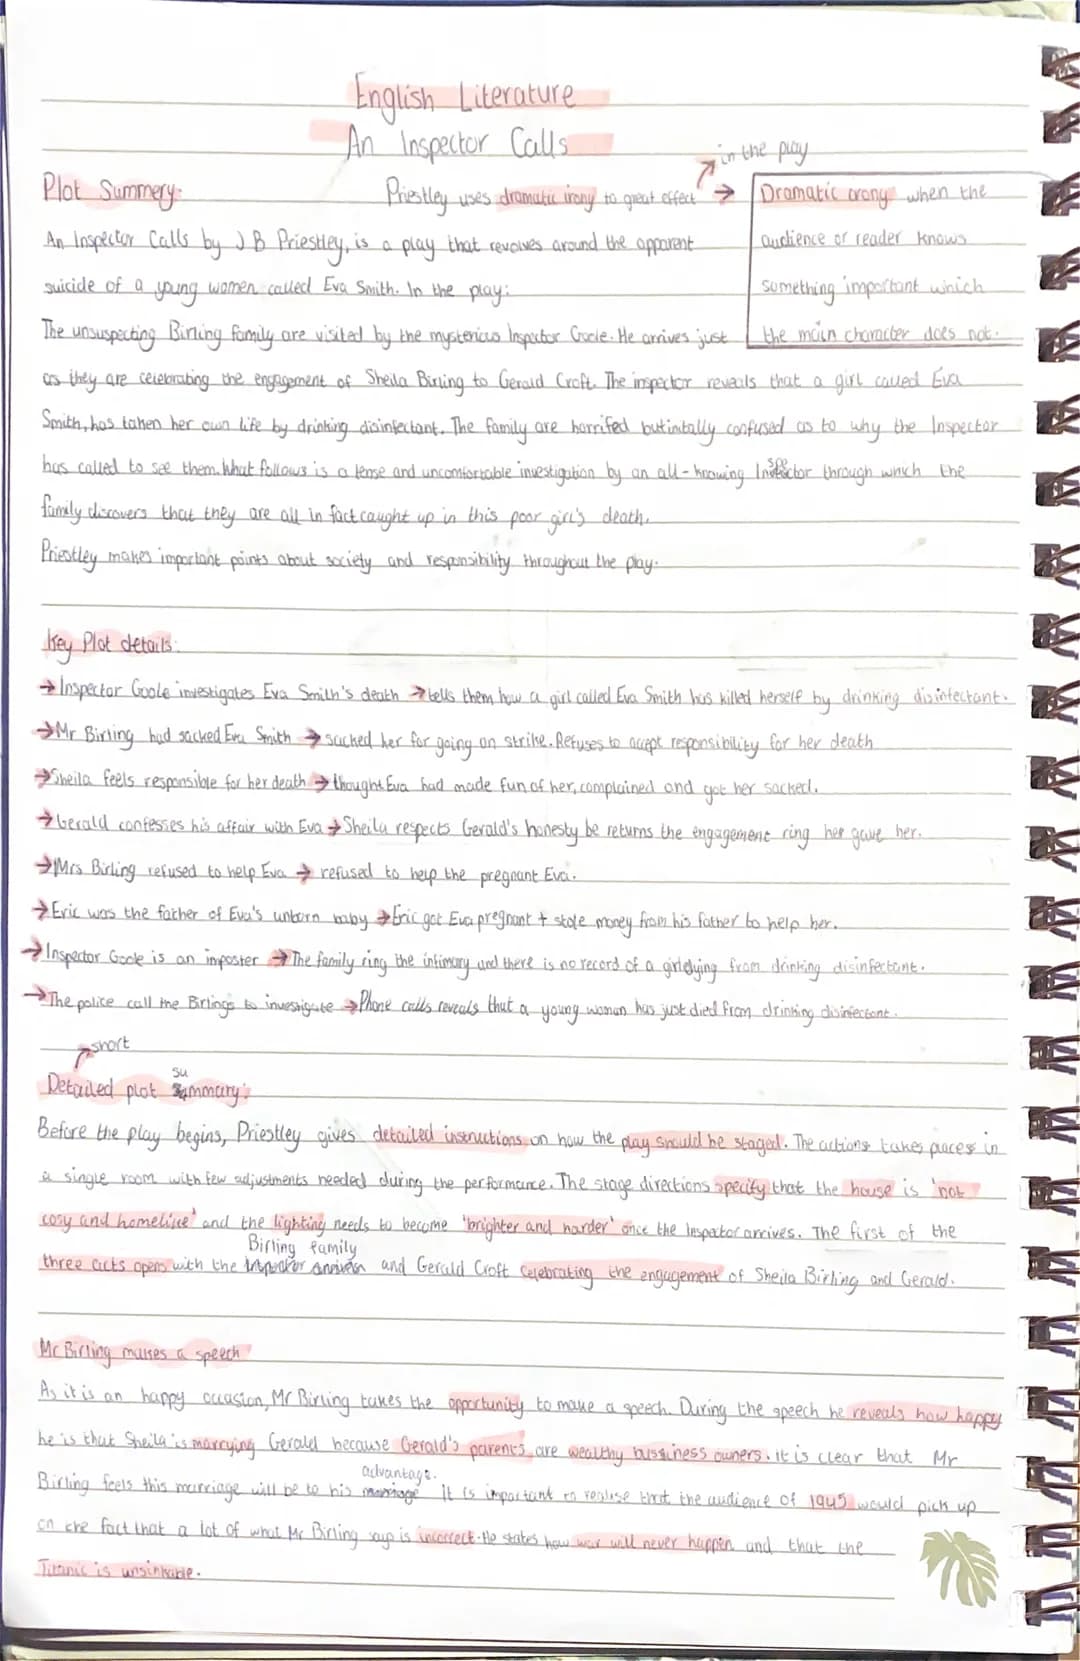 English Literature
An Inspector Calls
in the play
Plot Summery:
Priestley uses dramatic irony to great effect →
Dramatic orony when the
audience or reader knows
something important which
the main character does not.
An Inspector Calls by J B Priestley, is a play that revolves around the apparent
suicide of a young women called Eva Smith. In the play:
The unsuspecting Birling family are visited by the mysterious Inspector Goole. He arrives just
as they are celebrating the engagement of Sheila Birling to Gerald Croft. The inspector reveals that a girl called Eva
Smith, has taken her own life by drinking disinfectant. The family are horrifed but initally confused as to why the Inspector
has called to see them. What follows is a tense and uncomfortable investigation by an all-knowing Inspector through which the
family discovers that they are all in fact caught up in this poor girl's death.
Priestley makes important points about society and responsibility throughout the play.
Key Plot details:
→ Inspector Goole investigates Eva Smith's death → tells them how a girl called Eva Smith has killed herself by drinking disinfectant.
→ Mr Birling had sacked Eva Smith → sacked her for going on strike. Refuses to accept responsibility for her death
→ Sheila feels responsible for her death → thought Eva had made fun of her, complained and got her sacked.
→ Gerald confesses his affair with Eva → Sheila respects Gerald's honesty be returns the engagement ring her gave her.
→ Mrs Birling refused to help Eva → refused to help the pregnant Eva.
→ Eric was the father of Eva's unborn baby → Eric got Eva pregnant + stole money from his father to help her.
→ Inspector Goole is an imposter → The family ring the infimary and there is no record of a girl dying from drinking disinfectant.
→ The police call the Birlings to investigate → Phone calls reveals that a young woman has just died from drinking disinfectant.
short
su
Detailed plot summary:
Before the play begins, Priestley gives detailed instructions on how the play should be staged. The actions takes places in
a single room with few adjustments needed during the performance. The stage directions specify that the house is 'not
cosy and homelike' and the lighting needs to become 'brighter and harder' once the Inspector arrives. The first of the
Birling family
three acts opens with the and Gerald Croft celebrating the engagement of Sheila Birling and Gerald.
Mr Birling makes a speech
As it is an happy occasion, Mr Birling takes the opportunity to make a speech. During the speech he reveals how happy
he is that Sheila is marrying Gerald because Gerald's parents are wealthy bussiness owners. it is clear that Mr
advantage.
Birling feels this marriage will be to his marriage It is important to realise that the audience of 1945 would pick up
on the fact that a lot of what Mr Birling says is incorrect. He states how war will never happen and that the
Titanic is unsinkable.